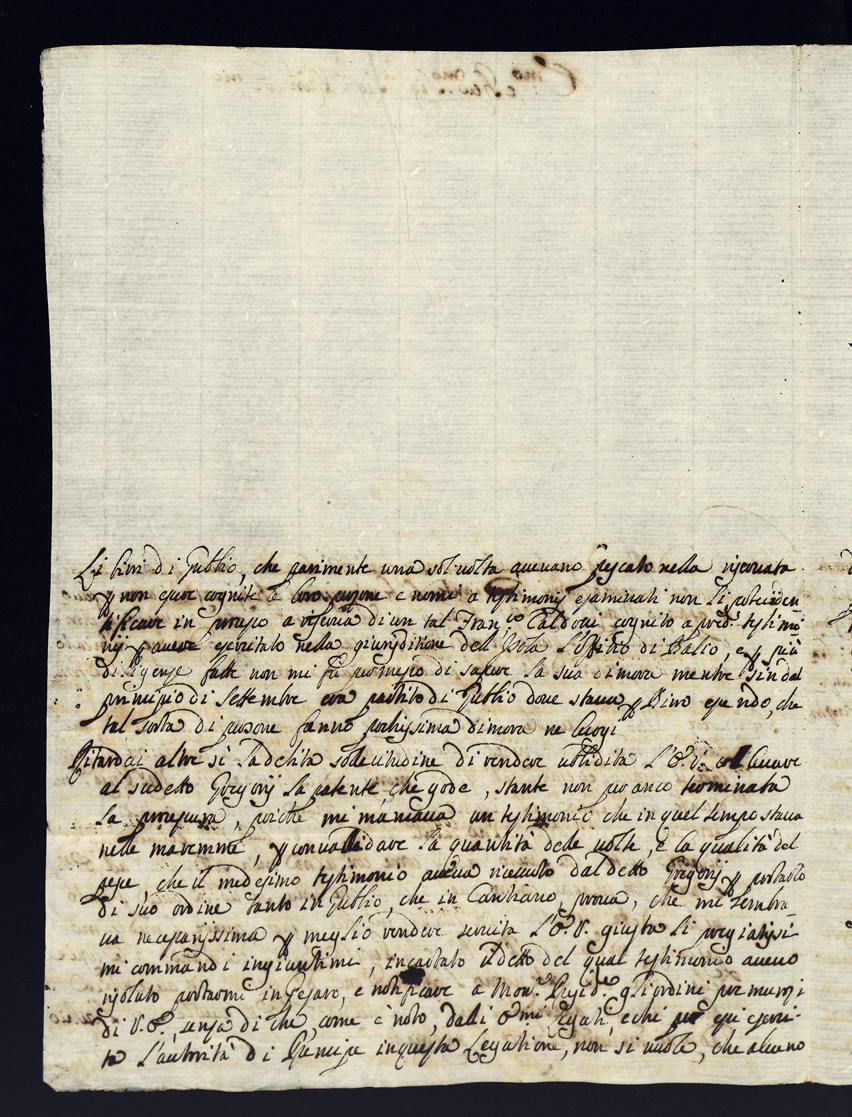 Li birri di Gubbio, che parimente una sol volta avevano pescato nella riservata
non esser cognite le loro persone e nomi a testimonij esaminati non li potei iden
tificare in processo a riserva di un tal Fran.co Caldori cognito a pred.i testimo
nij aver esercitato nella giurisditione dell'Isola l'Offitio di Balio, e più
diligenze fatte non mi fù permesso di sapere la sua dimora mentre sin dal
principio di Settembre era partito di Gubbio dove stava Birro essendo, che
tal sorta di persone fanno pochissima dimora ne luogi
Ritardai altre sì la debita sollecitudine di render ubbidita l'E.V. col levare
al sudetto Gregorij la patente, che gode, stante non per anco terminata
la processura, poiche mi mancava un testimonio che in quel tempo stava
nelle maremme, convalidare la quantità delle volte, e la qualità del
pesce, che il medesimo testimonio aveva ricevuto dal detto Gregorij portarlo
di suo ordine tanto in Gubbio, che in Cantiano, prova, che mi sembra
va necessarissima meglio render servita l'E.V. giusta li pregiatissi
mi commandi ingiuntimi, incartato il detto del qual testimonio avevo
risoluto portarmi in Pesaro, e notificare a Mon.r Presid.e gli ordini
di V.E., senza di che, come è noto, dalli E.mi Legati, e chi per essi eserci
ta l'autorità di Principe in questa Legatione, non si vuole, che alcuno